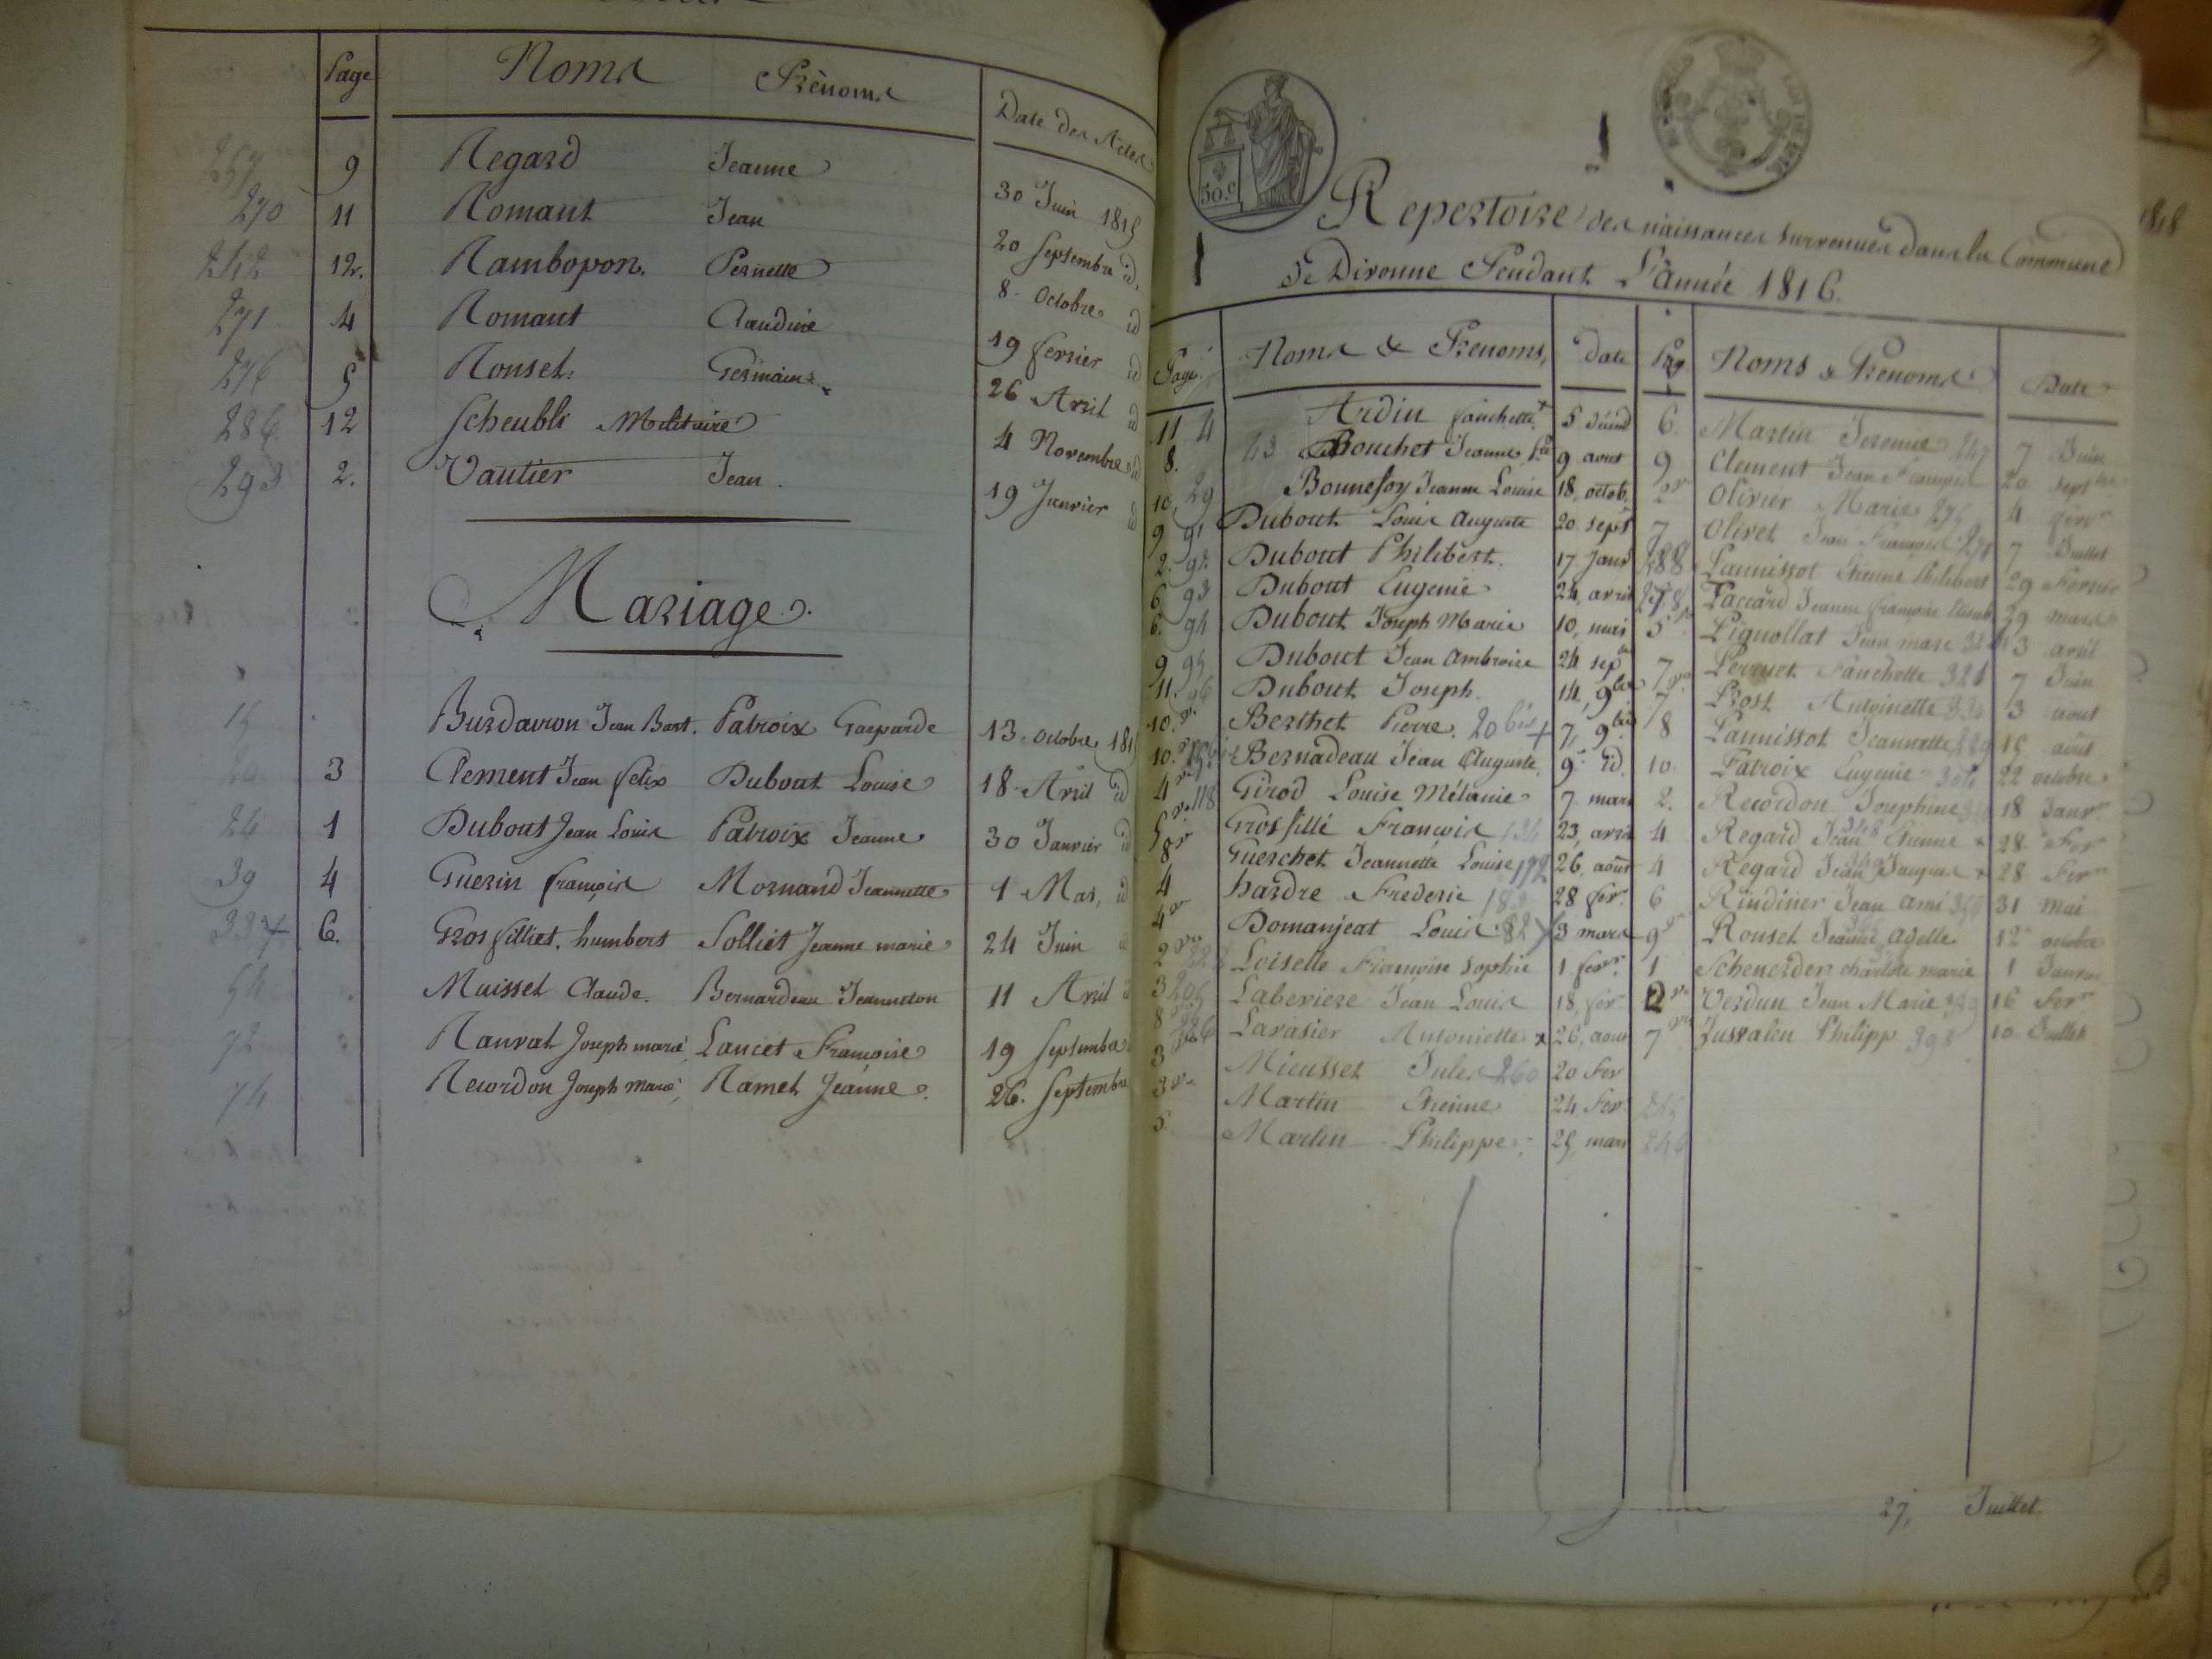 Page Noms Prénoms Date des Actes
257 9 Regard Jeanne 30 Juin 1815
270 11 Romant Jean 20 Septembre id.
12. Rambopon. Pernette 8. Octobre id
271 4 Romant Claudine 19 fevrier id
276 5 Rouset Germaine 26 Avril id
286 12 Scheubli Militaire 4 Novembre id
293 2. Vautier Jean. 19 Janvier id
Mariage.
15 Burdavron Jean Bart. Patroix Gasparde 13. Octobre 1815
20 3 Clement Jean felix Dubout Louise 18. Avril id
24 1 Dubout Jean Louis Patroix Jeanne 30 Janvier id
39 4 Guerin françois Mornand Jeannette 1 Mas, id
6. Grosfilliet. humbert Solliet Jeanne marie 24 Juin
54 Muisset Claude. Bernardeau Jeanneton 11 Avril
72 Ranvat Joseph marie Lancet Françoise 19 Septembre
74 Recordon Joseph Marie, Ramet Jeanne. 26. Septembre
50.c
Repertoire des naissances survenues dans la Commune
de Divonne Pendant L'année 1816.
Page. Noms & Prenoms, Date Pag Noms & Prenoms Date
11 4 Ardin fanchette 5 6. Martin Jeremie 247 7 Juin
8. Bouchet Jeanne 9 aout 9 Clement Jean François 20 sept
10 29 Bonnefoy Jeanne Louise 18, octob. 2 Olivier Marie 4 fevr
9 91 Dubout Louis Auguste 20 sept 7 Olivet Jean François 7 Juillet
2. 92 Dubout Philibert. 17 Janv Paunissot Etienne Philibert 29 Fevrier
6 93 Dubout Eugenie 24, avril Paccard Jeanne françoise 29 mars
6. 94 Dubout Joseph Marie 10, mai 5 Pignollat Jean marc 3 avril
9 95 Dubout Jean Ambroise 24 sep 7 Perruet Fanchette 321 7 Juin
11. 96 Dubout Joseph. 14, 9bre 7 Prost Antoinette 3 aout
10. Berthet Pierre. 20 bis + 7, 9bre 8 Paunissot Jeannette 15 août
10. Bernadeau Jean Auguste, 9. id. 10. Patroix Eugenie 22 octobre
4 118 Girod Louise Mélanie 7. mars 2. Recordon Josephine 18 Janvr
5 Grosfillé François 23, avril 4. Regard Jean Etienne 28 Fevr
8 Guerchet Jeannette Louise 26, août 4 Regard Jean François 28 Fevr
4 hardre Frederic 28 fevr. 6 Rindinier Jean Ami 31 Mai
4 Domanjeat Louis 82 3 mars 9 Rouset Jeanne Adelle 12 octobre
2 Loisette Françoise Sophie 1 fevr. 1 Schenerder charlote marie 1 Janvier
3 Laberiere Jean Louis 18, fevr 2 Verdun Jean Marie 16 Fevr
8 Lavasier Antoniette x 26, aout 7 Jusvaleu Philipp 398 10 Juillet
3 Mieusset Jules 260 20 Fev
3 Martin Etienne 24 Fev. 245
5. Martin Philippe. 25, mars
27, Juillet